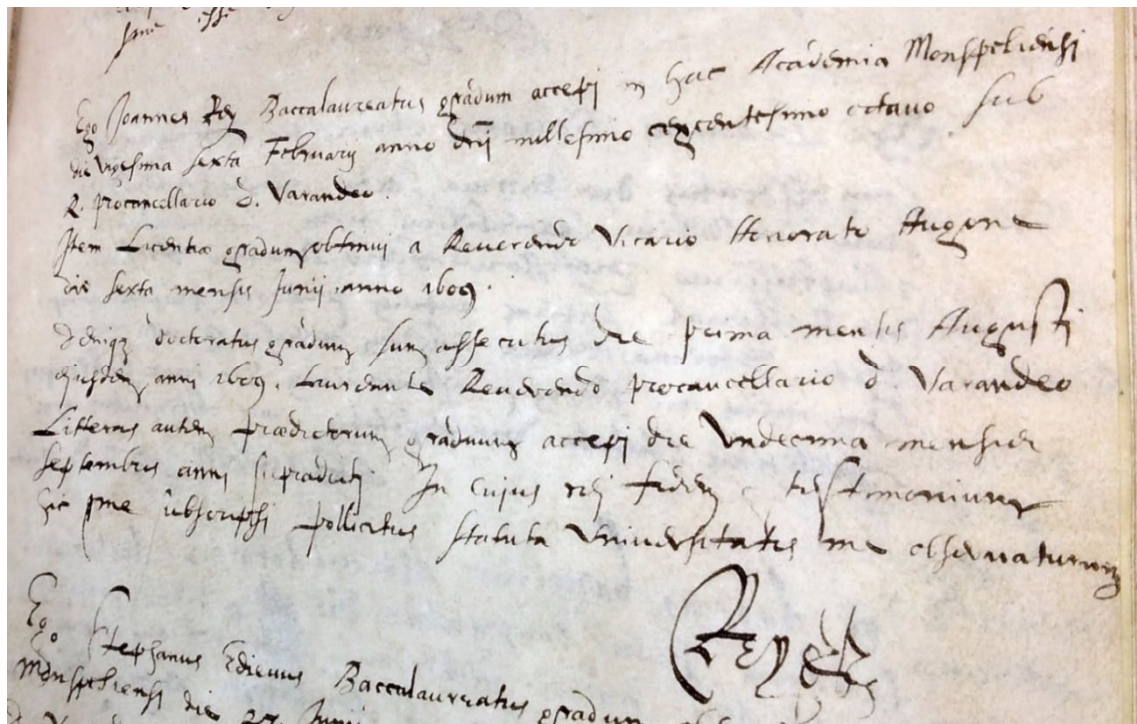 Ego Joannes Rey Baccalaureatus gradum accepi in hac Academia Monspeliensi
die vigesima sexta Februarii anno dnii millesimo cexcentesimo octavo sub
R. procancellario D. Varandeo.
Item Licentiæ gradum obtinui a Reverendo Vicario Honorato Hugone
die sexta mensis Junii anno 1609.
Deniq doctoratus gradum sum assecutus die prima mensis Augusti
ejusdem anni 1609. Laureante Reverendo procancellario D. Varandeo
Litteras autem prædictorum graduum accepi die Undecima mensis
septembris anni supradicti In cujus rei fidem testimonium
hic me subscripsi pollicitus statuta Universitatis me observaturum
Rey
Ego Stephanus Baccalaureatus gradum
Monspeliensi die 27 Junii